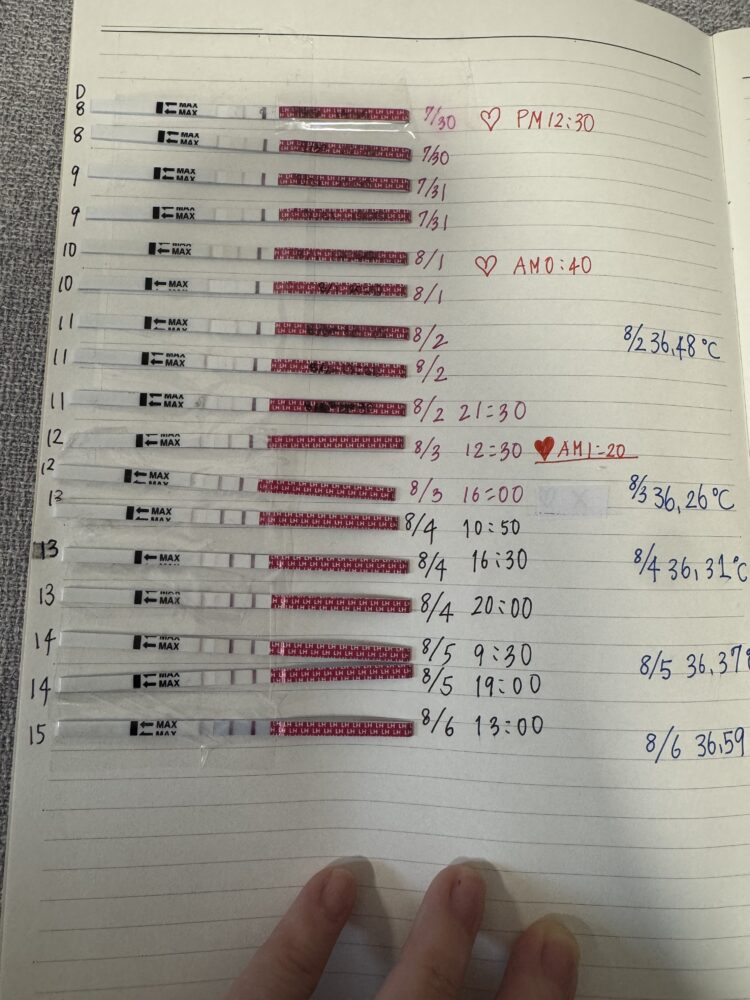 D
8 MAX MAX 7/30 ♡ PM12:30
8 MAX MAX 7/30
9 MAX MAX 7/31
9 MAX MAX 7/31
10 MAX MAX 8/1 ♡ AM0:40
10 MAX 8/1
11 MAX MAX 8/2 8/2 36,48°C
11 MAX MAX 8/2
11 MAX MAX 8/2 21:30
12 MAX MAX 8/3 12:30 ♥ AM1:20
12 MAX MAX 8/3 16:00 8/3 36,26°C
13 MAX MAX 8/4 10:50
13 MAX MAX 8/4 16:30 8/4 36,31°C
13 MAX MAX 8/4 20:00
14 MAX MAX 8/5 9:30 8/5 36,37
14 MAX MAX 8/5 19:00
15 MAX MAX 8/6 13:00 8/6 36,59